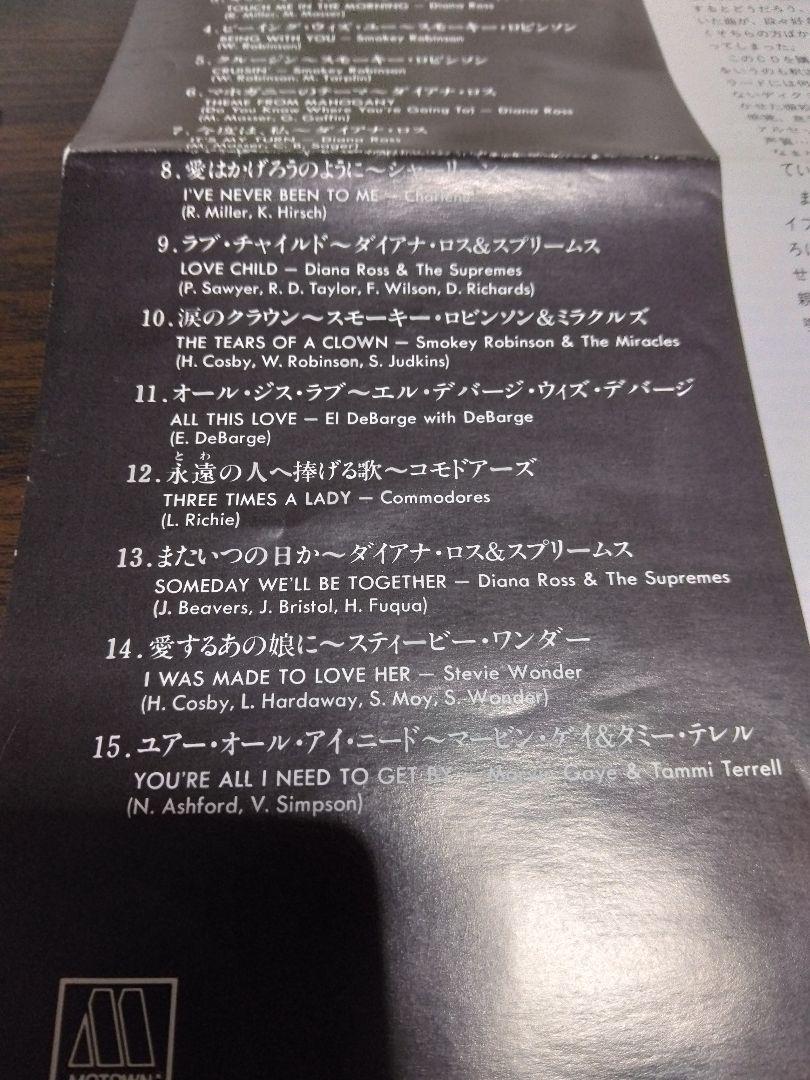 TOUCH ME IN THE MORNING — Diana Ross
(R. Miller, M. Masser)
4. ビーイング・ウィズ・ユー〜スモーキー・ロビンソン
BEING WITH YOU — Smokey Robinson
(W. Robinson)
5. クルージン〜スモーキー・ロビンソン
CRUISIN' — Smokey Robinson
(W. Robinson, M. Tarplin)
6. マホガニーのテーマ〜ダイアナ・ロス
THEME FROM MAHOGANY
(Do You Know Where You're Going To) — Diana Ross
(M. Masser, G. Goffin)
7. 今度は、私〜ダイアナ・ロス
IT'S MY TURN — Diana Ross
(M. Masser, C. B. Sager)
8. 愛はかげろうのように〜シャーリーン
I'VE NEVER BEEN TO ME — Charlene
(R. Miller, K. Hirsch)
9. ラブ・チャイルド〜ダイアナ・ロス&スプリームス
LOVE CHILD — Diana Ross & The Supremes
(P. Sawyer, R. D. Taylor, F. Wilson, D. Richards)
10. 涙のクラウン〜スモーキー・ロビンソン&ミラクルズ
THE TEARS OF A CLOWN — Smokey Robinson & The Miracles
(H. Cosby, W. Robinson, S. Judkins)
11. オール・ジス・ラブ〜エル・デバージ・ウィズ・デバージ
ALL THIS LOVE — El DeBarge with DeBarge
(E. DeBarge)
とわ
12. 永遠の人へ捧げる歌〜コモドアーズ
THREE TIMES A LADY — Commodores
(L. Richie)
13. またいつの日か〜ダイアナ・ロス&スプリームス
SOMEDAY WE'LL BE TOGETHER — Diana Ross & The Supremes
(J. Beavers, J. Bristol, H. Fuqua)
14. 愛するあの娘に〜スティービー・ワンダー
I WAS MADE TO LOVE HER — Stevie Wonder
(H. Cosby, L. Hardaway, S. Moy, S. Wonder)
15. ユアー・オール・アイ・ニード〜マービン・ゲイ&タミー・テレル
YOU'RE ALL I NEED TO GET BY — Marvin Gaye & Tammi Terrell
(N. Ashford, V. Simpson)
MOTOWN
するとどうだろう、
いた曲が、段々好
くそちらの方ばか
ってしまった。
このCDを購
をいうのも私
ラードには何
ないディク
かせた極め
アルセ
声質…
てい
ま
イブ
ろに
せ